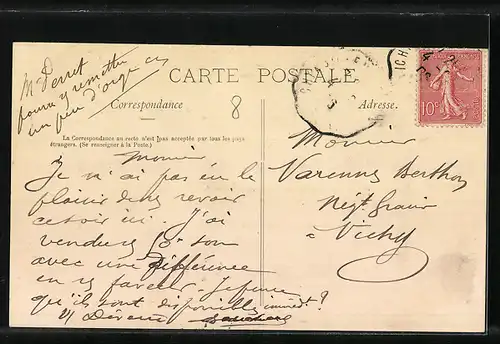 Mr Perret
pourra y remettre
un peu d'orge
CARTE POSTALE
Correspondance
8
Adresse.
La Correspondance au recto n'est pas acceptée par tous les pays
étrangers. (Se renseigner à la Poste.)
10c
Monsieur
Varennes Berthon
Négt Grains
à Vichy
Monsieur
Je n'ai pas eu le
plaisir de vs revoir
ce soir ici. J'ai
vendu son
avec une différence
en vs faveur. Je pense
qu'ils sont disponibles